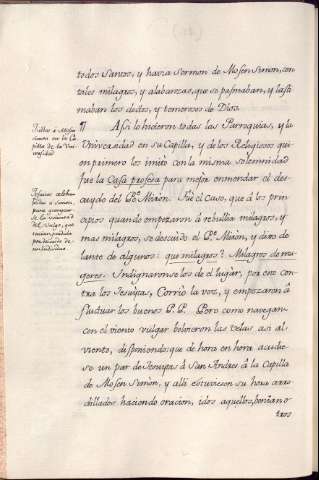 todos Santos, y havia Sermon de Mosen Simon, con
tales milagros, y alabanzas, que se pasmaban, y lasti
maban los doctos, y temerosos de Dios.
¶ Assi lo hicieron todas las Parroquias, y la
Universidad en su Capilla, y de los Religiosos qui
en primero los imitò con la misma solemnidad
fue la Casa profesa para mejor enmendar el des
cuydo del Pe. Miròn. Fuè el caso, que à los prin
cipios quando empezaron à rebullir milagros, y
mas milagros, se descuidò el Pe. Miròn, y dixo de
lante de algunos: que milagros? Milagros de mu
geres. Indignaronse los de el lugar, por esto con
tra los Jesuytas, Corriò la voz, y empezaron à
fluctuar los buenos P.P. Pero como navegan-
con el viento vulgar bolvieron las velas al
viento, disponiendo que de hora en hora acudie
se un par de Jesuytas à San Andres à la Capilla
de Mosen Simòn, y alli estuviesen su hora arro
dillados haciendo oracion, idos aquellos, venian o
tros
Mosen
Simon en la Ca
pilla de la Uni
versidad